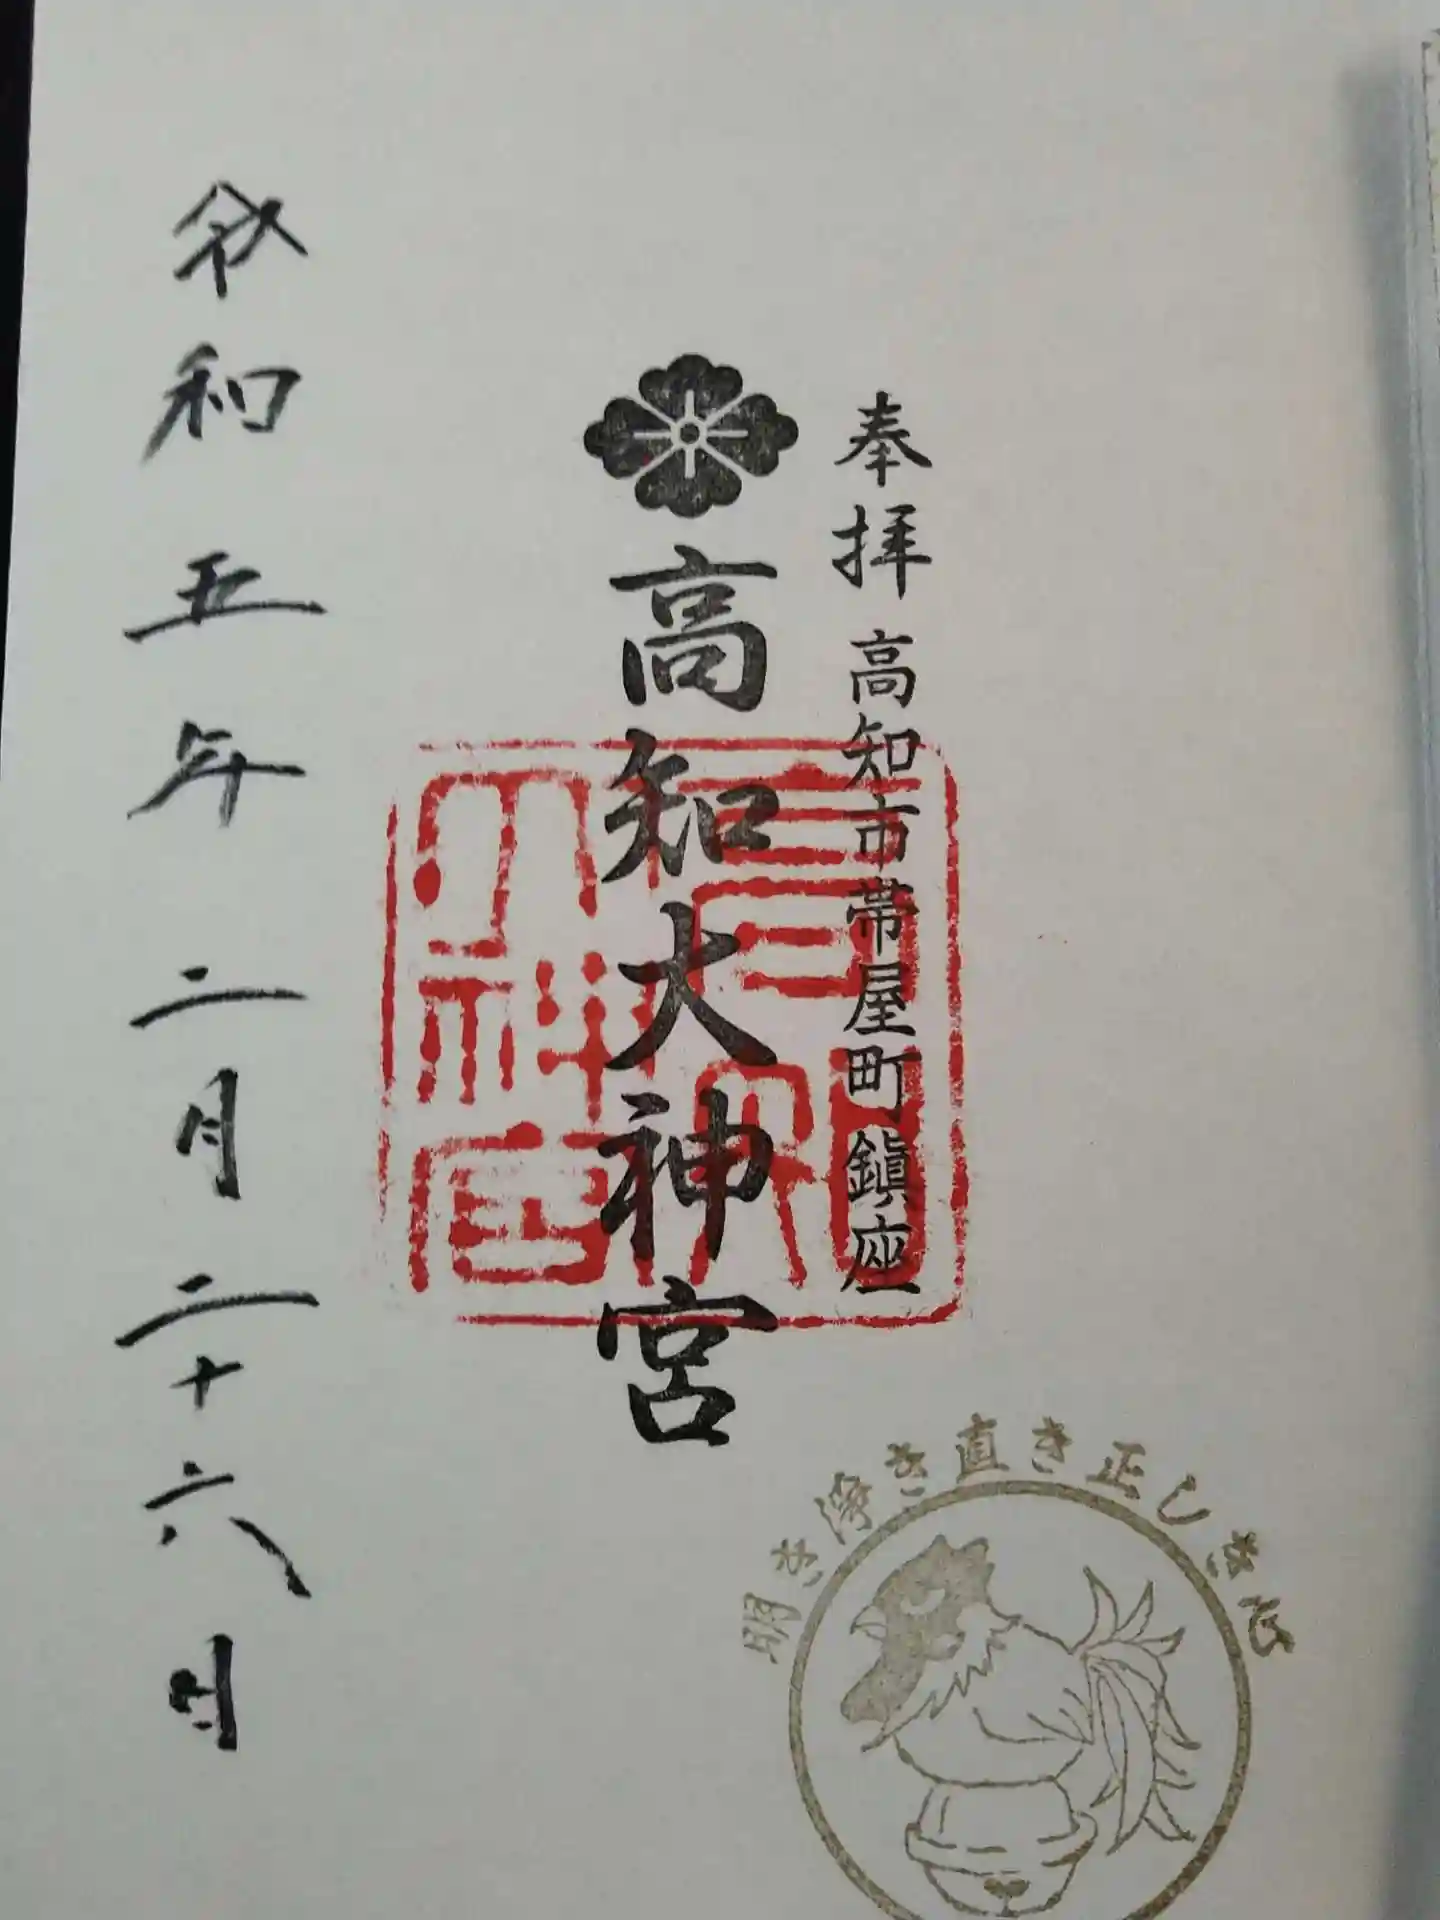 奉拝 高知市帯屋町鎮座
高知大神宮
高知大神宮
令和五年二月二十六日
明き浄き直き正しき心